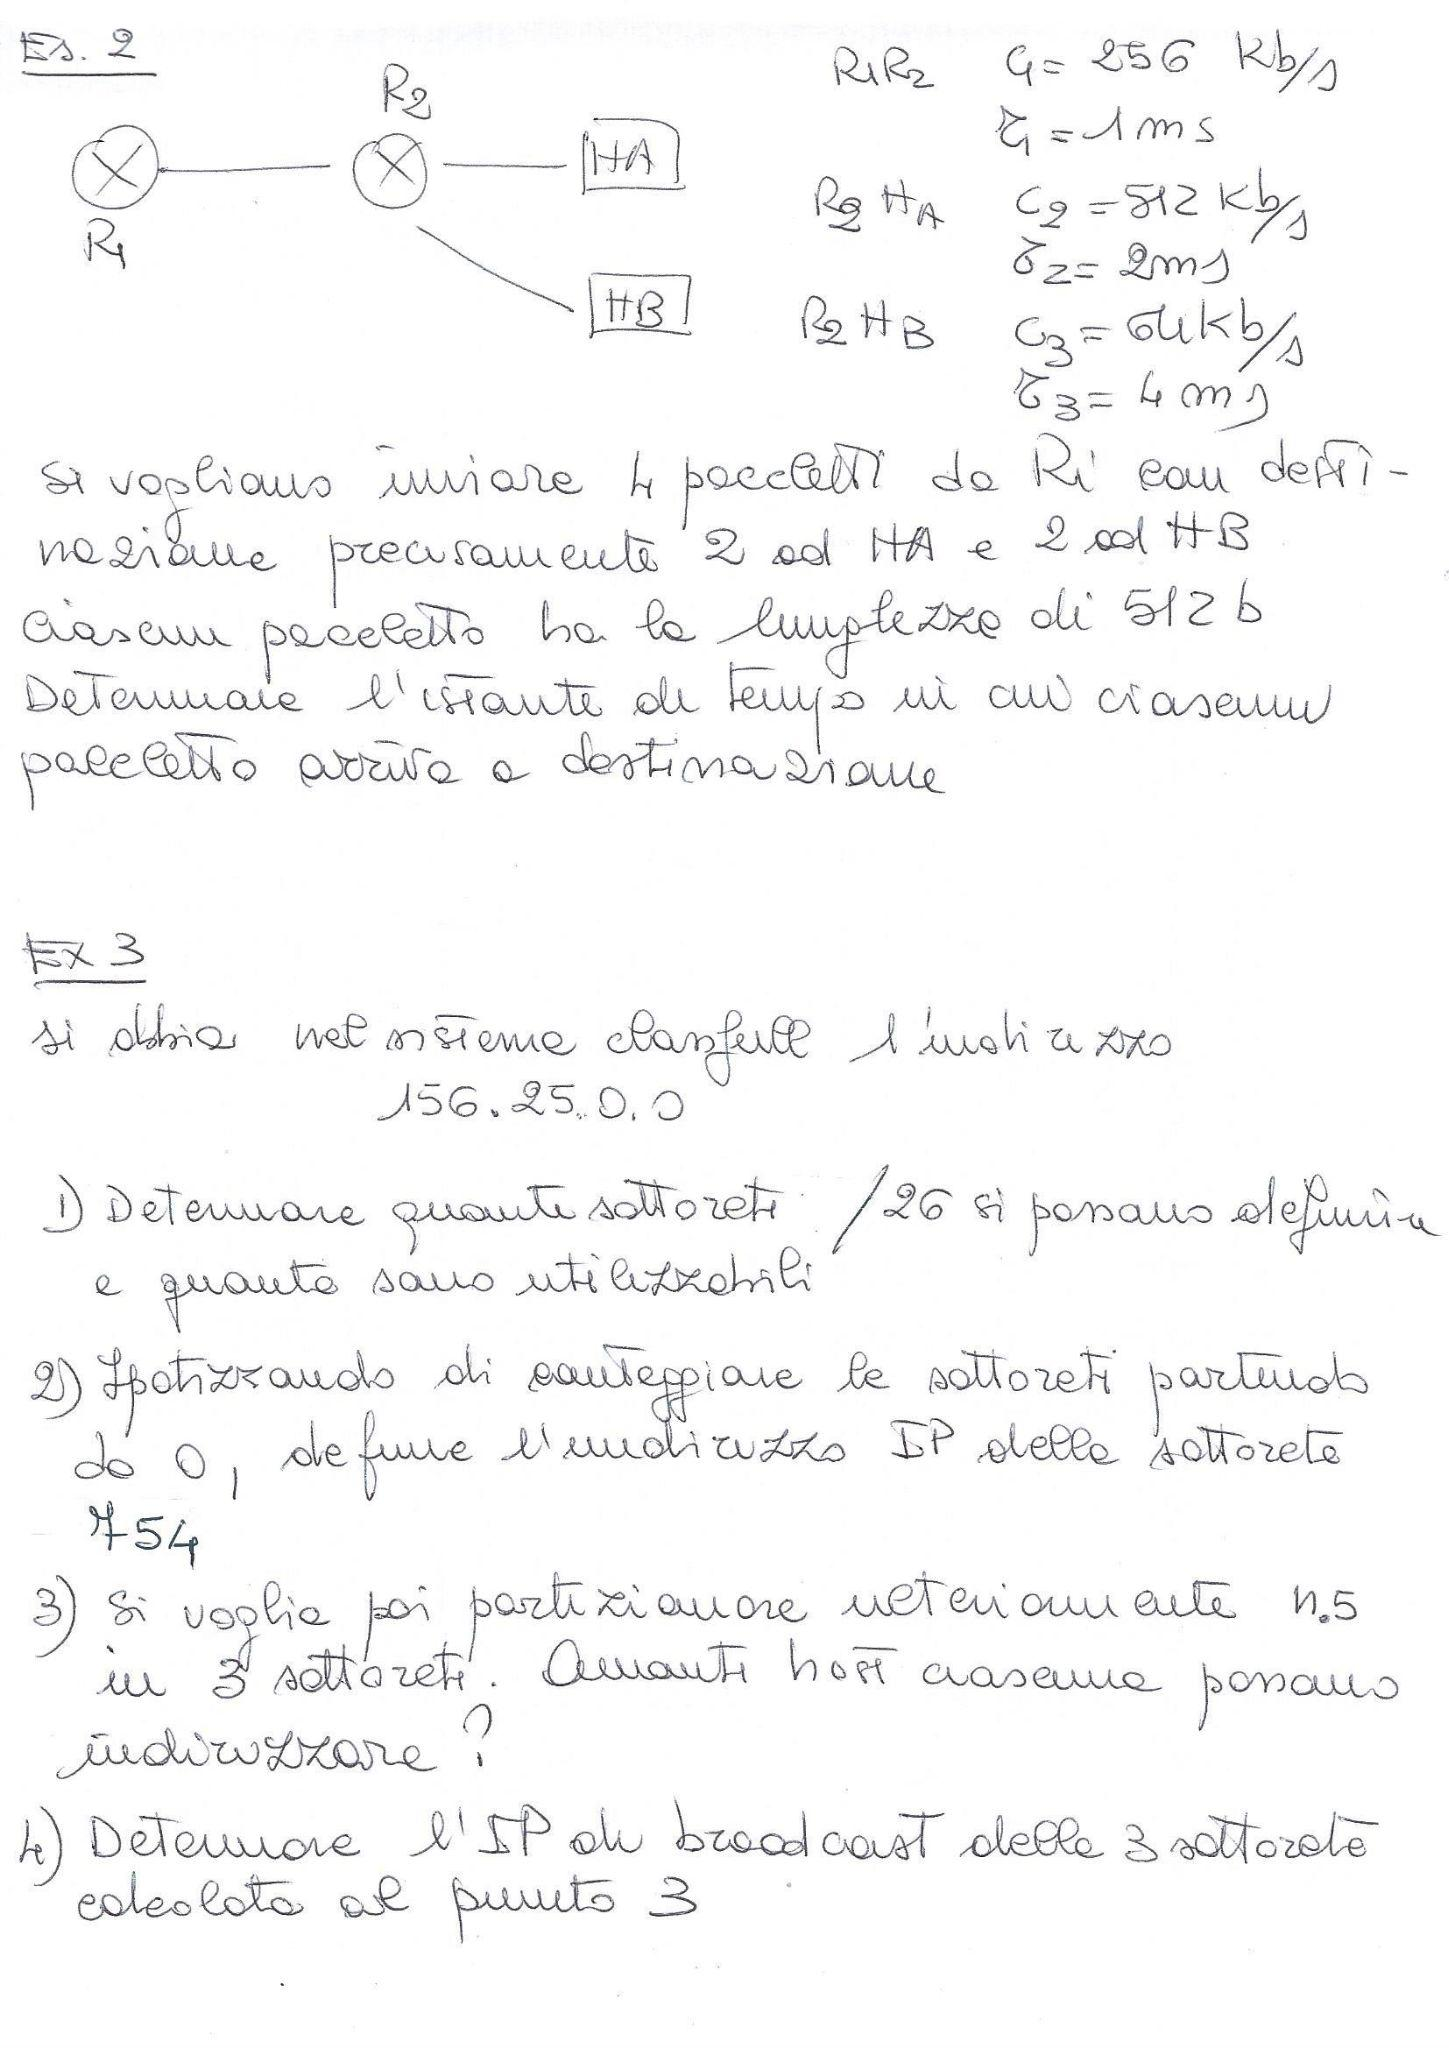 Es. 2
R2
HA
R1
HB
R1R2 C1= 256 Kb/s
τ1 = 1ms
R2 HA C2 = 512 Kb/s
τ2= 2ms
R2 HB C3= 64Kb/s
τ3= 4 ms
Si vogliano inviare 4 pacchetti da R1 con desti-
nazione precisamente 2 ad HA e 2 ad HB
Ciascun pacchetto ha la lunghezza di 512 b
Determinare l'istante di tempo in cui ciascun
pacchetto arriva a destinazione
Ex 3
si abbia nel sistema classfull l'indirizzo
156.25.0.0
1) Determinare quante sottoreti /26 si possano definire
e quante sono utilizzabili
2) Ipotizzando di conteggiare le sottoreti partendo
da 0, definire l'indirizzo IP della sottorete
754
3) Si voglia poi partizionare ulteriormente n.5
in 3 sottoreti. Quanti host ciascuna possano
indirizzare ?
4) Determinare l'IP di broadcast della 3 sottorete
calcolata al punto 3